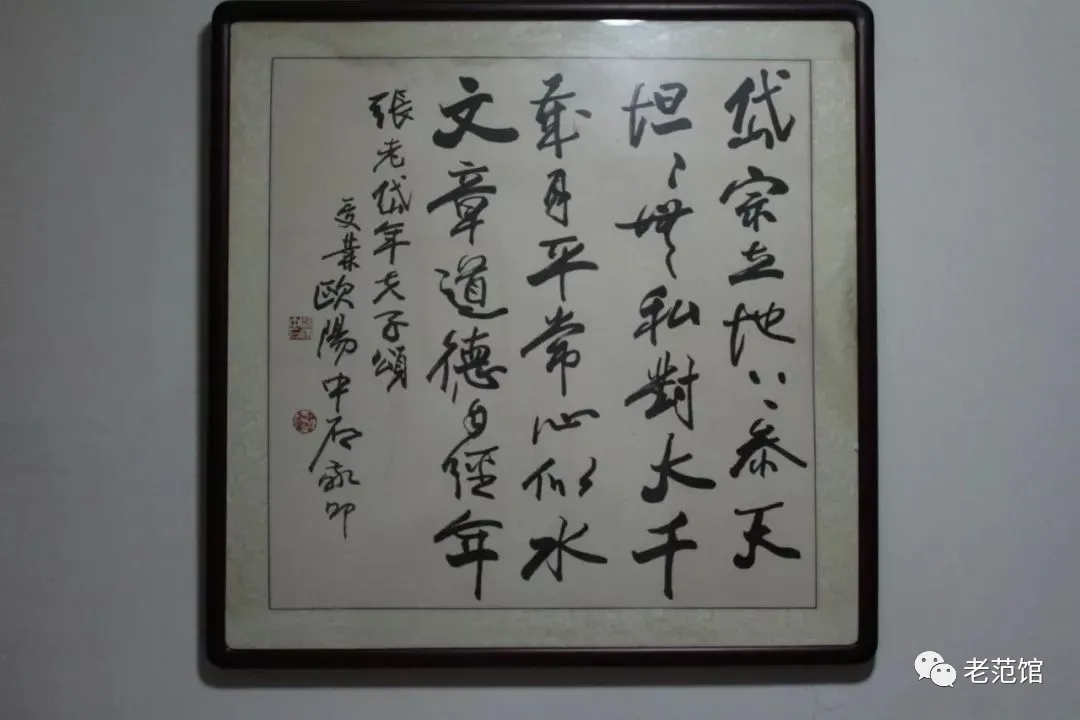 岱宗立地〻参天
坦〻無私對大千
歲月平常心似水
文章道德自經年
張老岱年夫子頌
受業歐陽中石敬叩
老范馆